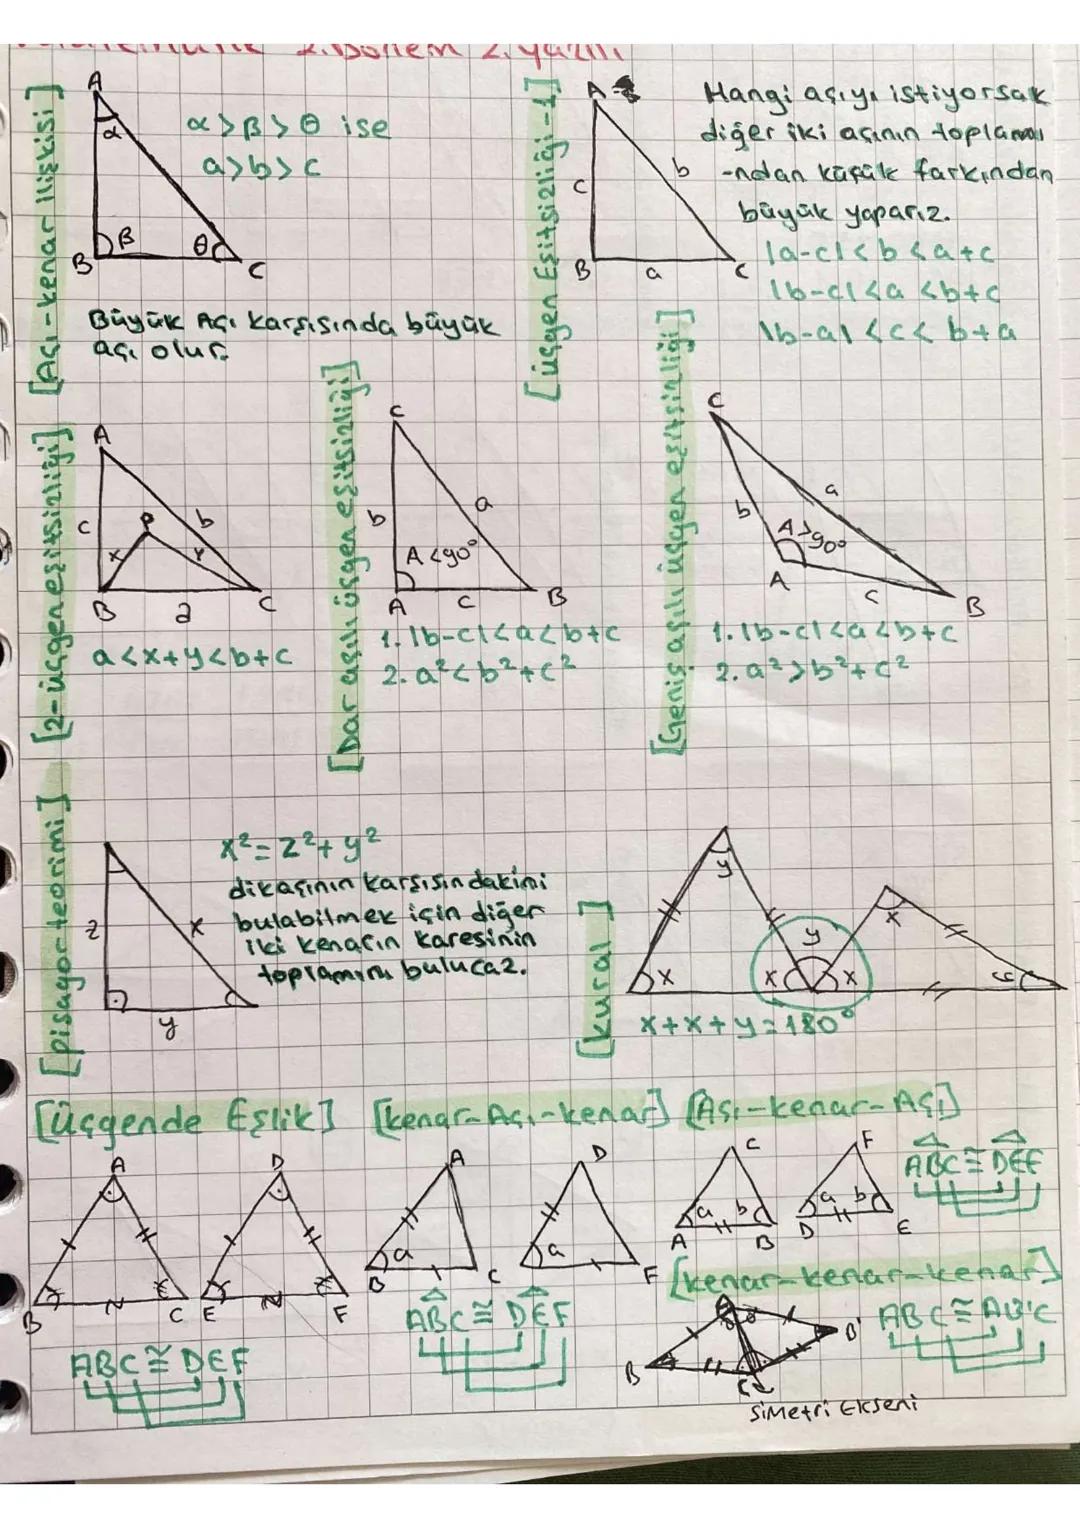 2. Dönem 2. yazılı
[Açı-kenar İlişkisi]
A
α
B
β
θ
C
α>β>θ ise
a>b>c
Büyük Açı karşısında büyük
açı olur.
[üçgen Eşitsizliği-1]
A
c
b
B
a
C
Hangi açıyı istiyorsak
diğer iki açının toplamı
-ndan küçük farkından
büyük yaparız.
|a-c|<b<a+c
|b-c|<a<b+c
|b-a|<c<b+a
[2-üçgen eşitsizliği]
A
c
b
P
x
y
B
a
C
a<x+y<b+c
[Dar açılı üçgen eşitsizliği]
C
b
a
A<90°
A
c
B
1. |b-c|<a<b+c
2. a²<b²+c²
[Geniş açılı üçgen eşitsizliği]
C
a
b
A>90°
A
c
B
1. |b-c|<a<b+c
2. a²>b²+c²
[pisagor teorimi]
z
x
y
x²=z²+y²
dikaçının karşısındakini
bulabilmek için diğer
iki kenarın karesinin
toplamını bulucaz.
[kural]
y
x
x
y
x
x
y
x+x+y=180°
[üçgende Eşlik]
A
B
C
D
E
F
ABC≅DEF
[kenar-Açı-kenar]
A
a
B
C
D
a
F
ABC≅DEF
[Açı-kenar-Açı]
C
a
b
A
B
F
a
b
D
E
ABC≅DEF
[kenar-kenar-kenar]
B
B'
C
ABC≅AB'C
Simetri Ekseni